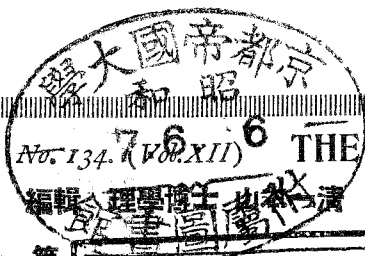 京都帝國大學
昭和
7. 6. 6
No. 134. (Vol. XII) THE
編輯 理學博士 山本一清
圖書館
第